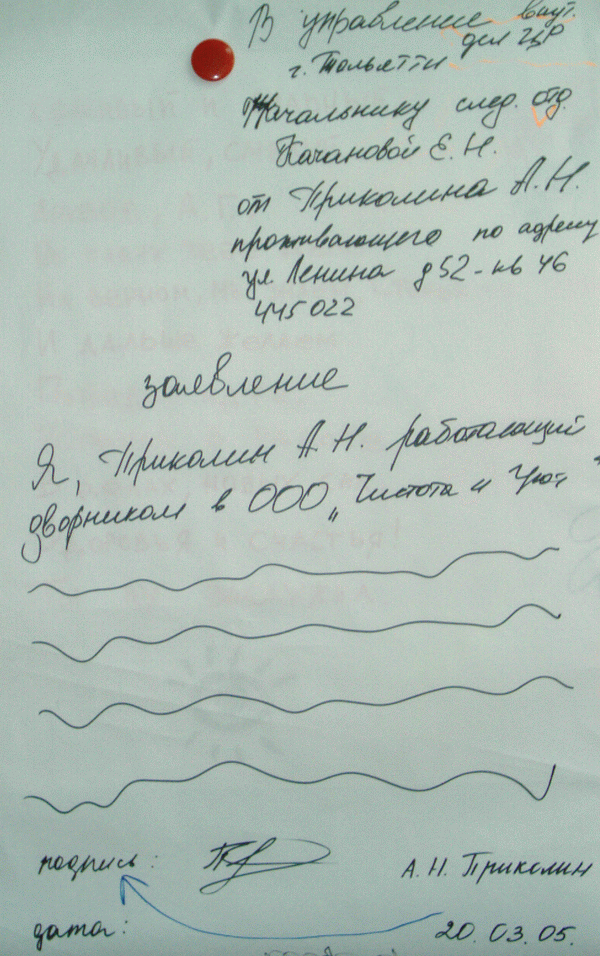 В управление внут.
дел ЦР
г. Тольятти
Начальнику след. отд.
Качановой Е. Н.
от Приколина А. Н.
проживающего по адресу
ул. Ленина д 52 - кв 46
445022
заявление
Я, Приколин А. Н. работающий
дворником в ООО „Чистота и Уют"
подпись:
А. Н. Приколин
дата:
20. 03. 05.